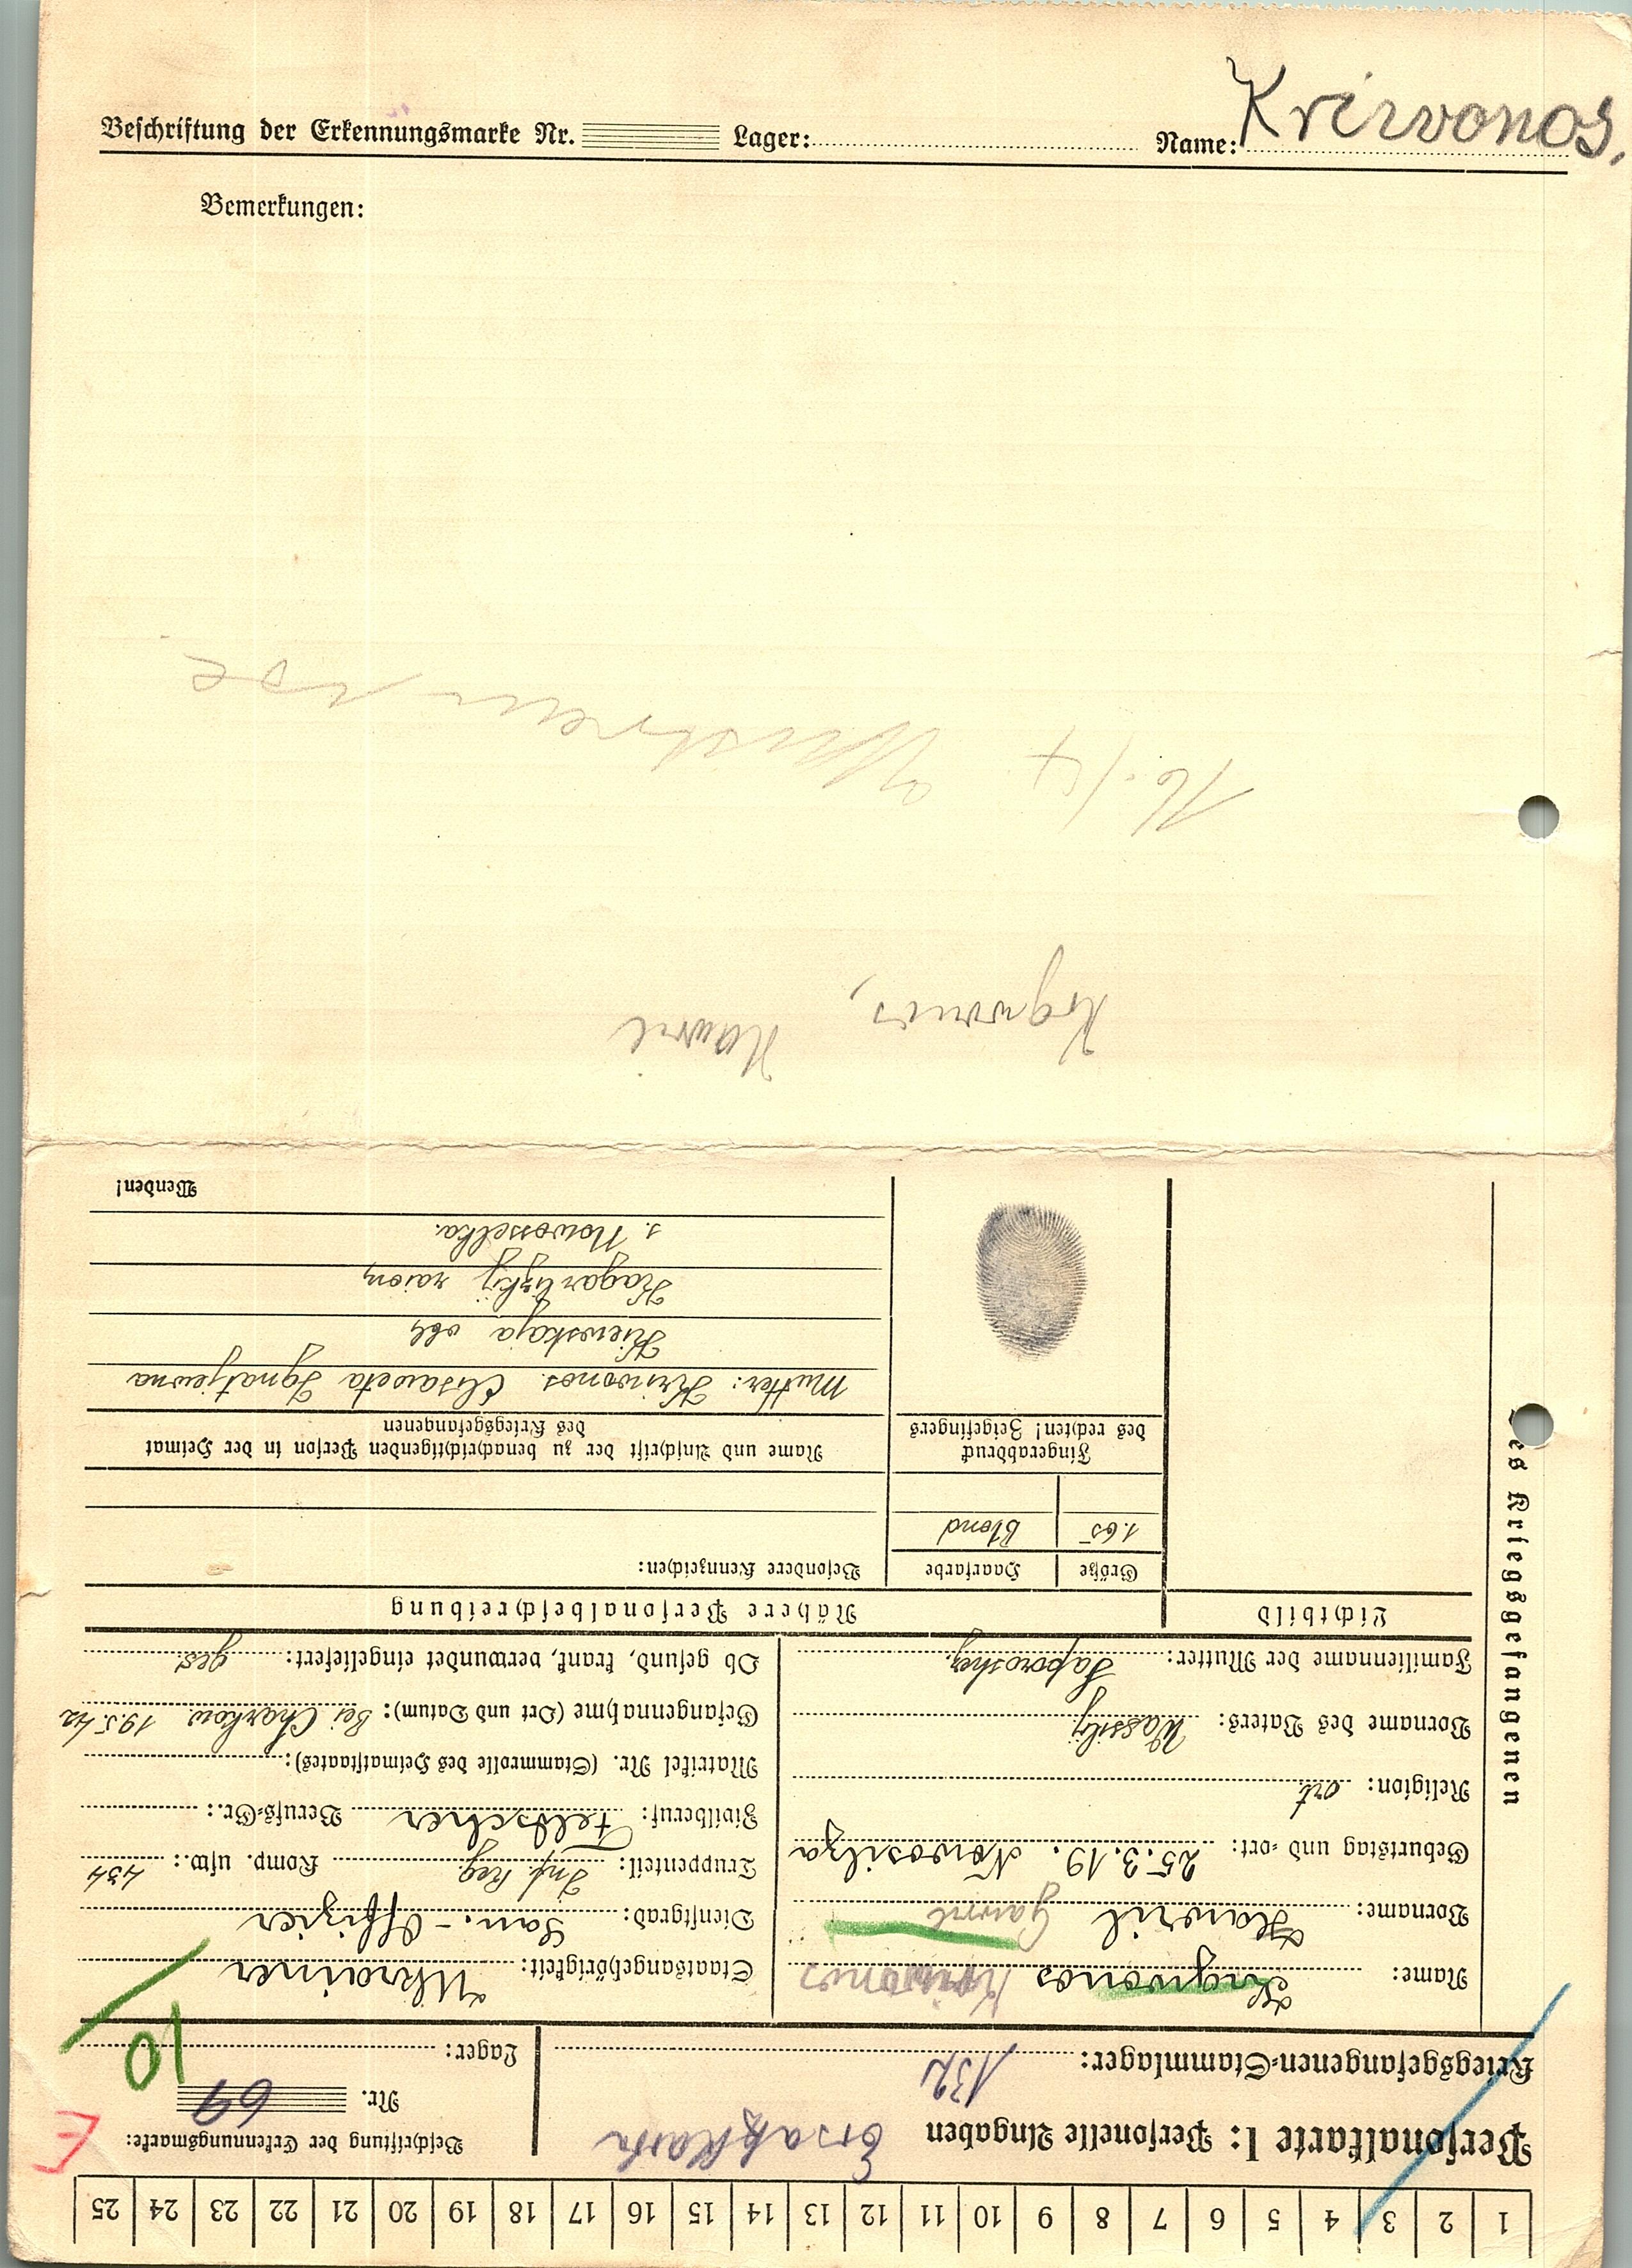 Beschriftung der Erkennungsmarke Nr. Lager: Name: Krivonos.
Bemerkungen:
1 2 3 4 5 6 7 8 9 10 11 12 13 14 15 16 17 18 19 20 21 22 23 24 25
Personalkarte I: Personelle Angaben
Kriegsgefangenen-Stammlager: 132
Beschriftung der Erkennungsmarke:
Nr. 69
Lager:
10
E
des Kriegsgefangenen
Name: Krywonos Kriwonos
Vorname: Hawril Gavril
Geburtstag und -ort: 25.3.19. Nowosilza
Religion: ort
Vorname des Vaters: Wassilij
Familienname der Mutter:
Staatsangehörigkeit: Ukrainer
Dienstgrad: San.-Offizier
Truppenteil: Inf. Reg. Komp. usw.: 434
Zivilberuf: Feldscher Berufs-Gr.:
Matrikel Nr. (Stammrolle des Heimatstaates):
Gefangennahme (Ort und Datum): Bei Charkow. 19.5.42
Ob gesund, krank, verwundet eingeliefert: ges.
Lichtbild
Nähere Personalbeschreibung
Größe Haarfarbe Besondere Kennzeichen:
1.65 Blond
Fingerabdruck
des rechten! Zeigefingers
Name und Anschrift der zu benachrichtigenden Person in der Heimat
des Kriegsgefangenen
Mutter: Kriwonos Elisaweta Ignatjewna
Kiewskaja obl
Kagarlizkij raion
s. Nowosselka.
Wenden!